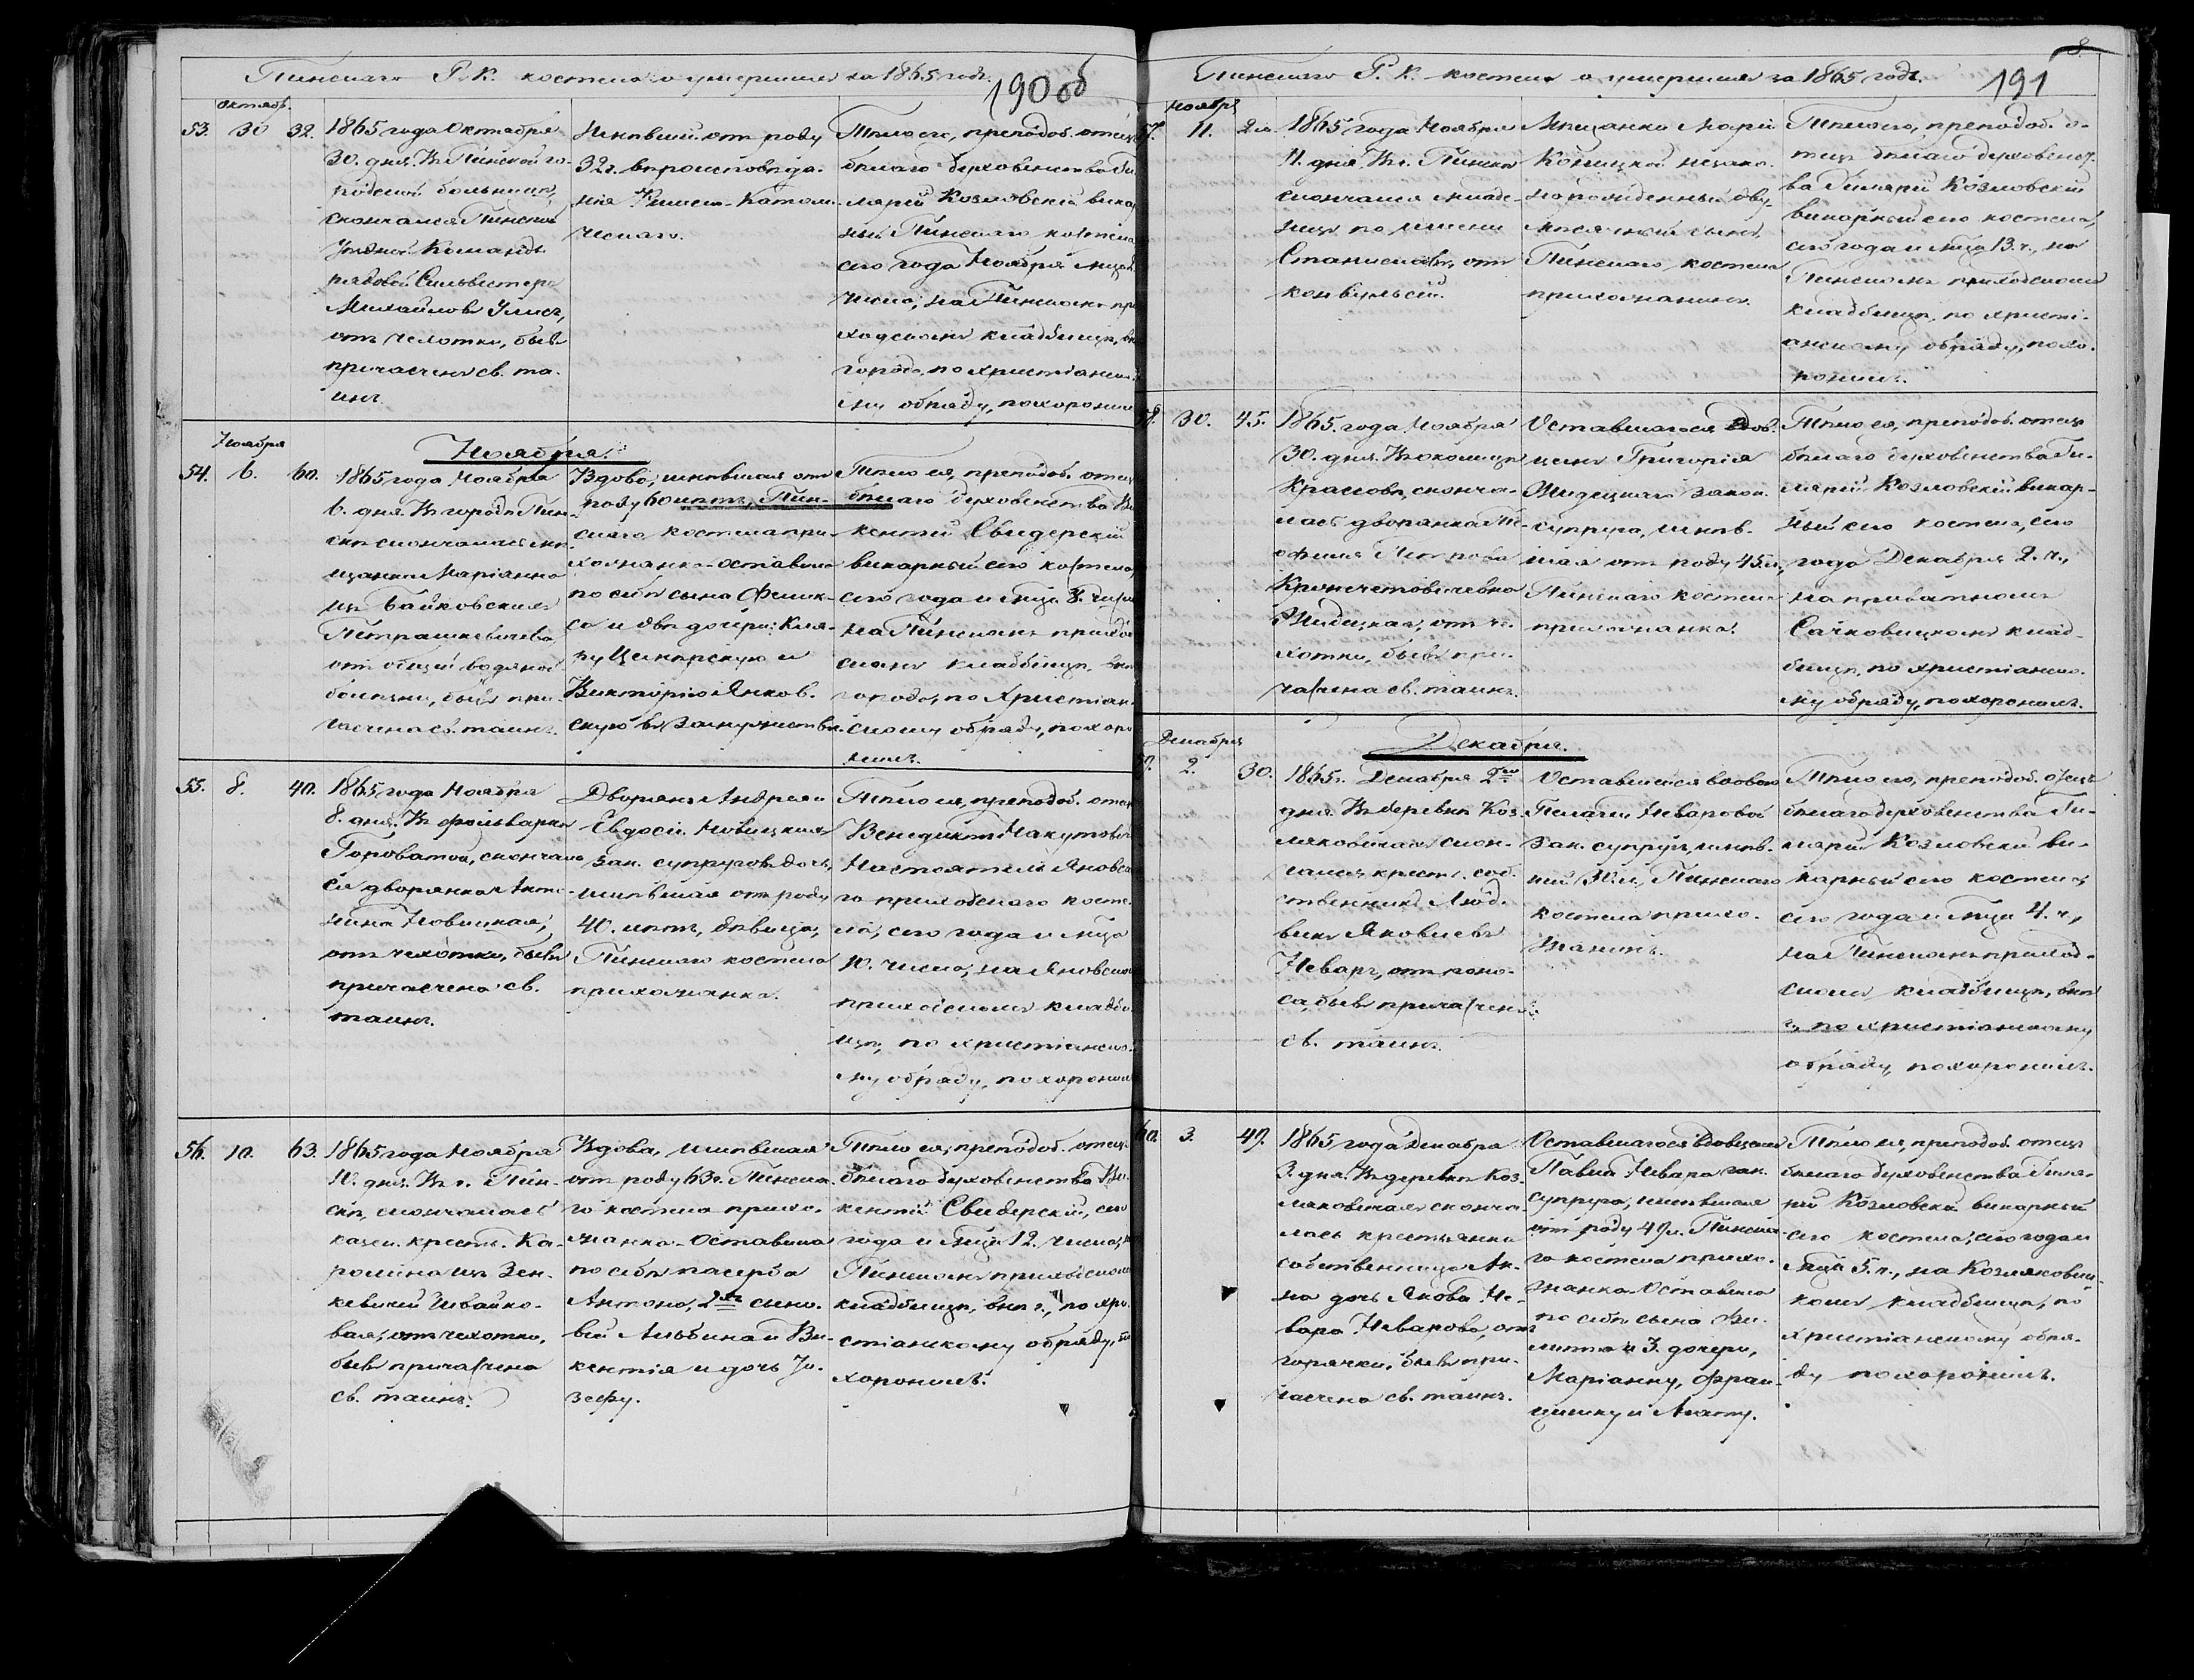 Пинскаго Р. К. костела о умершихъ за 1865 годъ.
190 об
Октябр.
53. 30 32.
1865 года Октября
30. дня. Въ Пинской го-
родской больницѣ,
скончался Пинской
Уѣздной Команды
рядовой Сильвестеръ
Михайловъ
отъ чахотки, бывъ
причащенъ св. та-
инъ.
Имѣвшій отъ роду
32 г. вѣроисповѣда-
нія Римско-Католи-
ческаго.
Тѣло его, преподоб. отецъ
бѣлаго духовенства Ги-
лярій Козловскій викар
ный Пинскаго костела
сего года Ноября мца
числа, на Пинскомъ при
ходскомъ кладбищѣ, внѣ
города, по христіанско
му обряду, похоронилъ
Ноября
Ноябрь.
54. 6. 60.
1865 года Ноября
6. дня. Въ городѣ Пин-
скѣ скончалась мѣ-
щанка Маріанна
изъ Байковскихъ
Петрашкевичева
отъ общей водяной
болѣзни, бывъ при-
чащена св. таинъ.
Вдова, имѣвшая отъ
роду 60 лѣтъ, Пин-
скаго костела при-
хожанка. Оставила
по себѣ сына Фелик-
са и двѣ дочери: Кла-
ру и
Викторію Янков-
скую въ замужествѣ.
Тѣло ея, преподоб. отецъ
бѣлаго духовенства Ви
кентій Свидерскій
викарный сего костела,
сего года и мца 8. числа
на Пинскомъ приход
скомъ кладбищѣ, внѣ
города, по Христіан-
скому обряду, похоро
нилъ.
55. 8. 40.
1865 года Ноября
8. дня. Въ фольваркѣ
Гороватой, сконча
ся дворянка Анто-
нина Новицкая,
отъ чахотки, бывъ
причащена св.
таинъ.
Дворянъ Андрея и
Евдосіи Новицкихъ
зак. супруговъ дочь,
имѣвшая отъ роду
40. лѣтъ, дѣвица,
Пинскаго костела
прихожанка.
Тѣло ея, преподоб. отецъ
Венедиктъ Макутович
Настоятель Яновска
го приходскаго косте-
ла, сего года и мца
10. числа, на Яновскомъ
приходскомъ кладби
щѣ, по христіанско-
му обряду, похоронилъ
56. 10. 63.
1865 года Ноября
10. дня. Въ г. Пин-
скѣ, скончалась
казен. крестъ. Ка-
ролина изъ Зен-
кевичей Швайко-
вая, отъ чахотки,
бывъ причащена
св. таинъ.
Вдова, имѣвшая
отъ роду 63 г. Пинска-
го костела прихо-
жанка. Оставила
по себѣ пасерба
Антона, 2хъ сыно-
вей Альбина и Ви-
кентія и дочь Ю-
зефу.
Тѣло ея, преподоб. отецъ
бѣлаго духовенства Ви-
кентій Свидерскій, сего
года и мца 12. числа, на
Пинскомъ приходскомъ
кладбищѣ, внѣ г., по хри-
стіанскому обряду, по
хоронилъ.
Пинскаго Р. К. костела о умершихъ за 1865 годъ.
191
Ноябрь
57. 11. 2 м.
1865 года Ноября
11. дня. Въ г. Пинскѣ
скончался младе-
нецъ по имени
Станиславъ, отъ
конвульсій.
Мѣщанки Маріи
незако-
норожденный дву-
мѣсячный сынъ,
Пинскаго костела
прихожанинъ.
Тѣло его, преподоб. о-
тецъ бѣлаго духовенст-
ва Гилярій Козловскій
викарный сего костела,
сего года и мца 13. ч., на
Пинскомъ приходскомъ
кладбищѣ, по христі-
анскому обряду, похо-
ронилъ.
58. 30. 45.
1865. года Ноября
30. дня. Въ околицѣ
сконча-
лась дворянка Те-
офилія Петрова
Кринчетовичевна
Жидецкая, отъ ча-
хотки, бывъ при-
чащена св. таинъ.
Оставшагося вдов-
цемъ Григорія
Жидецкаго закон.
супруга, имѣв-
шая отъ роду 45 л.,
Пинскаго костела
прихожанка.
Тѣло ея, преподоб. отецъ
бѣлаго духовенства Ги-
лярій Козловскій викар-
ный сего костела, сего
года Декабря 2. ч.,
на приватномъ
Сачковицкомъ клад-
бищѣ, по христіанско-
му обряду, похоронилъ.
Декабря
Декабрь.
59. 2. 30.
1865 г. Декабря 2го
дня. Въ деревнѣ Коз-
ляковичахъ скон-
чался крест. соб-
ственникъ Люд-
викъ Яковлевъ
Неваръ, отъ поно-
са, бывъ причащенъ
св. таинъ.
Оставшейся вдовою
Пелагеи Неваровой
зак. супругъ, имѣв-
шій 30 л., Пинскаго
костела прихо-
жанинъ.
Тѣло его, преподоб. отецъ
бѣлаго духовенства Ги-
лярій Козловскій ви-
карный сего костела,
сего года и мца 4. ч.,
на Пинскомъ приход-
скомъ кладбищѣ, внѣ
г., по христіанскому
обряду, похоронилъ.
60. 3. 49.
1865 года Декабря
3. дня. Въ деревнѣ Коз-
ляковичахъ сконча-
лась крестьянка
собственница Ан-
на дочь Якова Не-
вара Неварова, отъ
горячки, бывъ при-
чащена св. таинъ.
Оставшагося вдовцемъ
Павла Невара зак.
супруга, имѣвшая
отъ роду 49 л. Пинска-
го костела прихо-
жанка. Оставила
по себѣ сына
и 3. дочери,
Маріанну, Фран-
цишку и Агату.
Тѣло ея, преподоб. отецъ
бѣлаго духовенства Гиля-
рій Козловскій викарный
сего костела, сего года и
мца 5. ч., на Козляковиц-
комъ кладбищѣ, по
христіанскому обря-
ду похоронилъ.